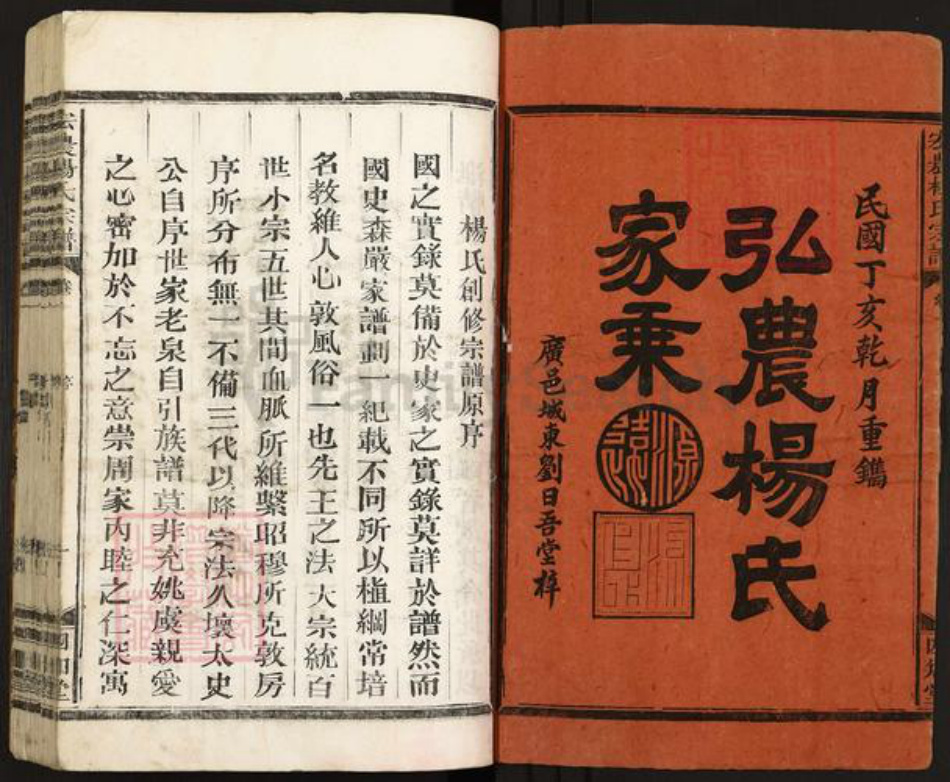 民國丁亥乾月重鐫
弘農楊氏
家乘
廣邑城東劉日吾堂梓
楊氏創修宗譜原序
國之實錄莫備於史家之實錄莫詳於譜然而
國史森嚴家譜劃一紀載不同所以植綱常培
名教維人心敦風俗一也先王之法大宗統百
世小宗五世其間血脈所維繫昭穆所克敦房
序所分布無一不備三代以降宗法久壞太史
公自序世家老泉自引族譜莫非充姚虞親愛
之心密加於不忘之意崇周家內睦之仁深寓